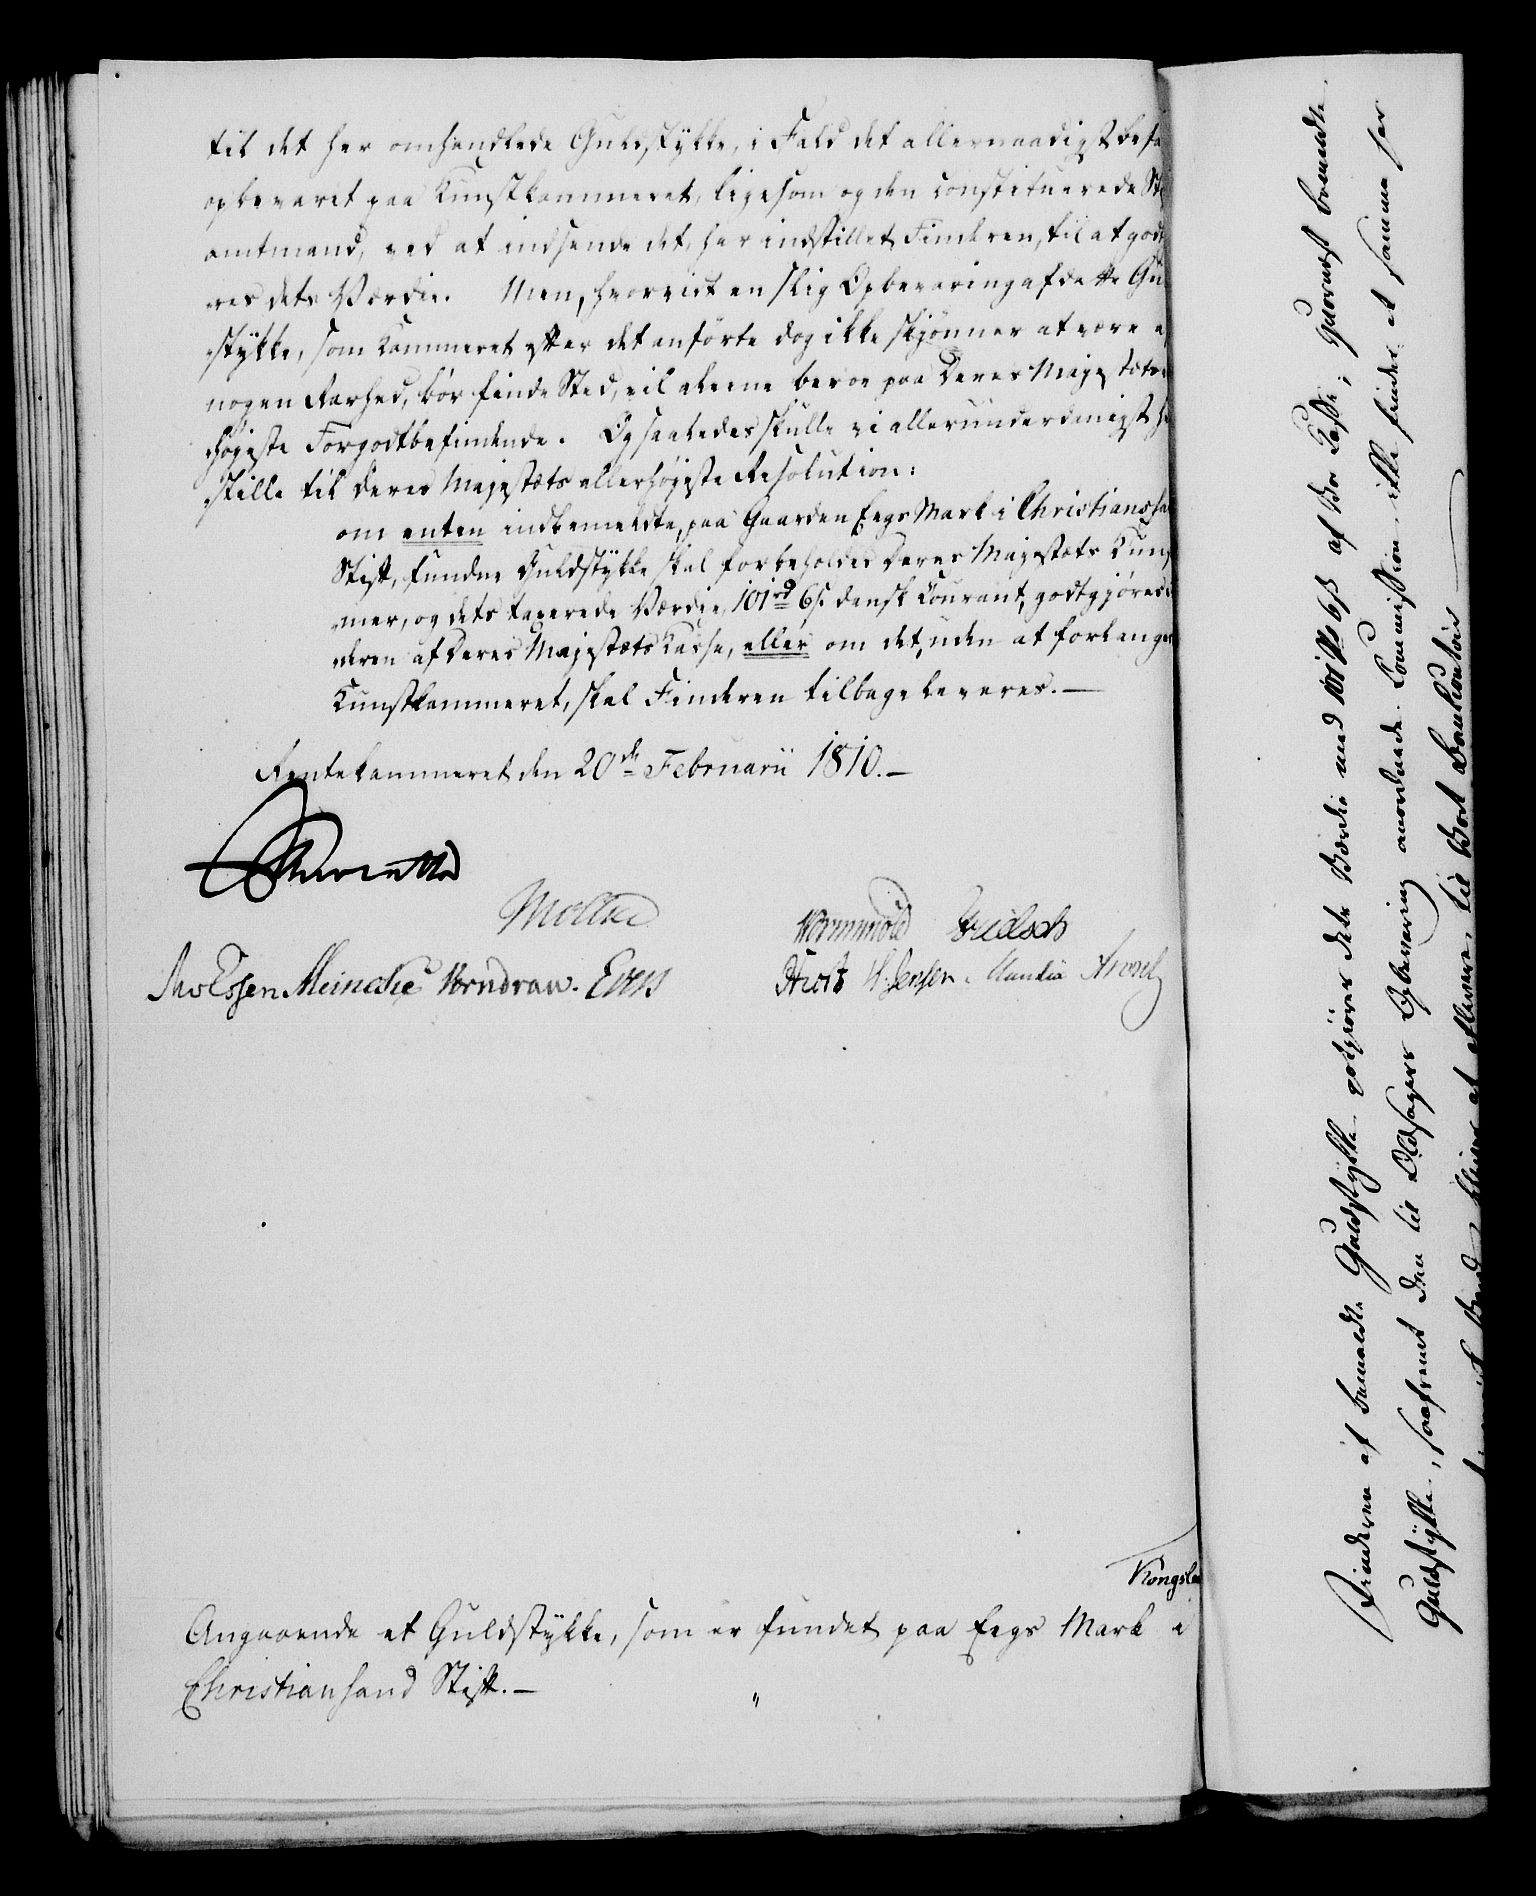 til det her omhandlede Guldstÿkke, i Fald det allernaadigst befa
opbevaret paa Kunstkammeret, ligesom og den constituerede Sti
amtmand, ved at indsende det, har indstillet Finderen, til at godt
res dets Værdie. Men, hvorvidt en slig Opbevaring af dette Gu
stÿkke, som Kammeret efter det anførte dog ikke skjønner at være a
nogen Rarhed, bør finde Sted, vil alene beroe paa Deres Majestæts
højeste Forgodtbefindende. Og saaledes skulle vi allerunderdanigst he
stille til Deres Majestæts allerhøjeste Resolution:
om enten indbemeldte, paa Gaarden Eegs Mark i Christianssa
Stift, fundne Guldstÿkke skal forbeholdes Deres Majestæts Kuns
mer, og dets taxerede Værdie, 101 rd 6 s. dansk Courant, godtgjøres
deren af Deres Majestæts Kasse, eller om det, uden at forlanges
Kunstkammeret, skal Finderen tilbageleveres. —
Rentekammeret den 20de Februarii 1810. —
Moltke
Wormskiold
Essen Meincke Vorndran. Evers
Holst H. Jensen.
Kongsbe
Angaaende et Guldstÿkke, som er fundet paa Eegs Mark i
Christiansand Stift. —
Finderen af bemeldte Guldstÿkke godtgiøres dets Værdie med 101 rd 6 s af Vor Kasse; hvornæst bemeldte
Guldstÿkke, saafremt den til Oldsagers Opbevaring anordnede Commission ikke finder at samme har
at aflevere til Vort